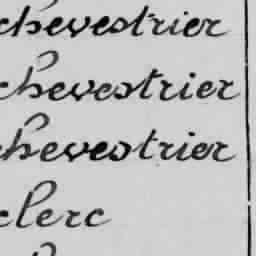 chevestrier
chevestrier
chevestrier
clerc